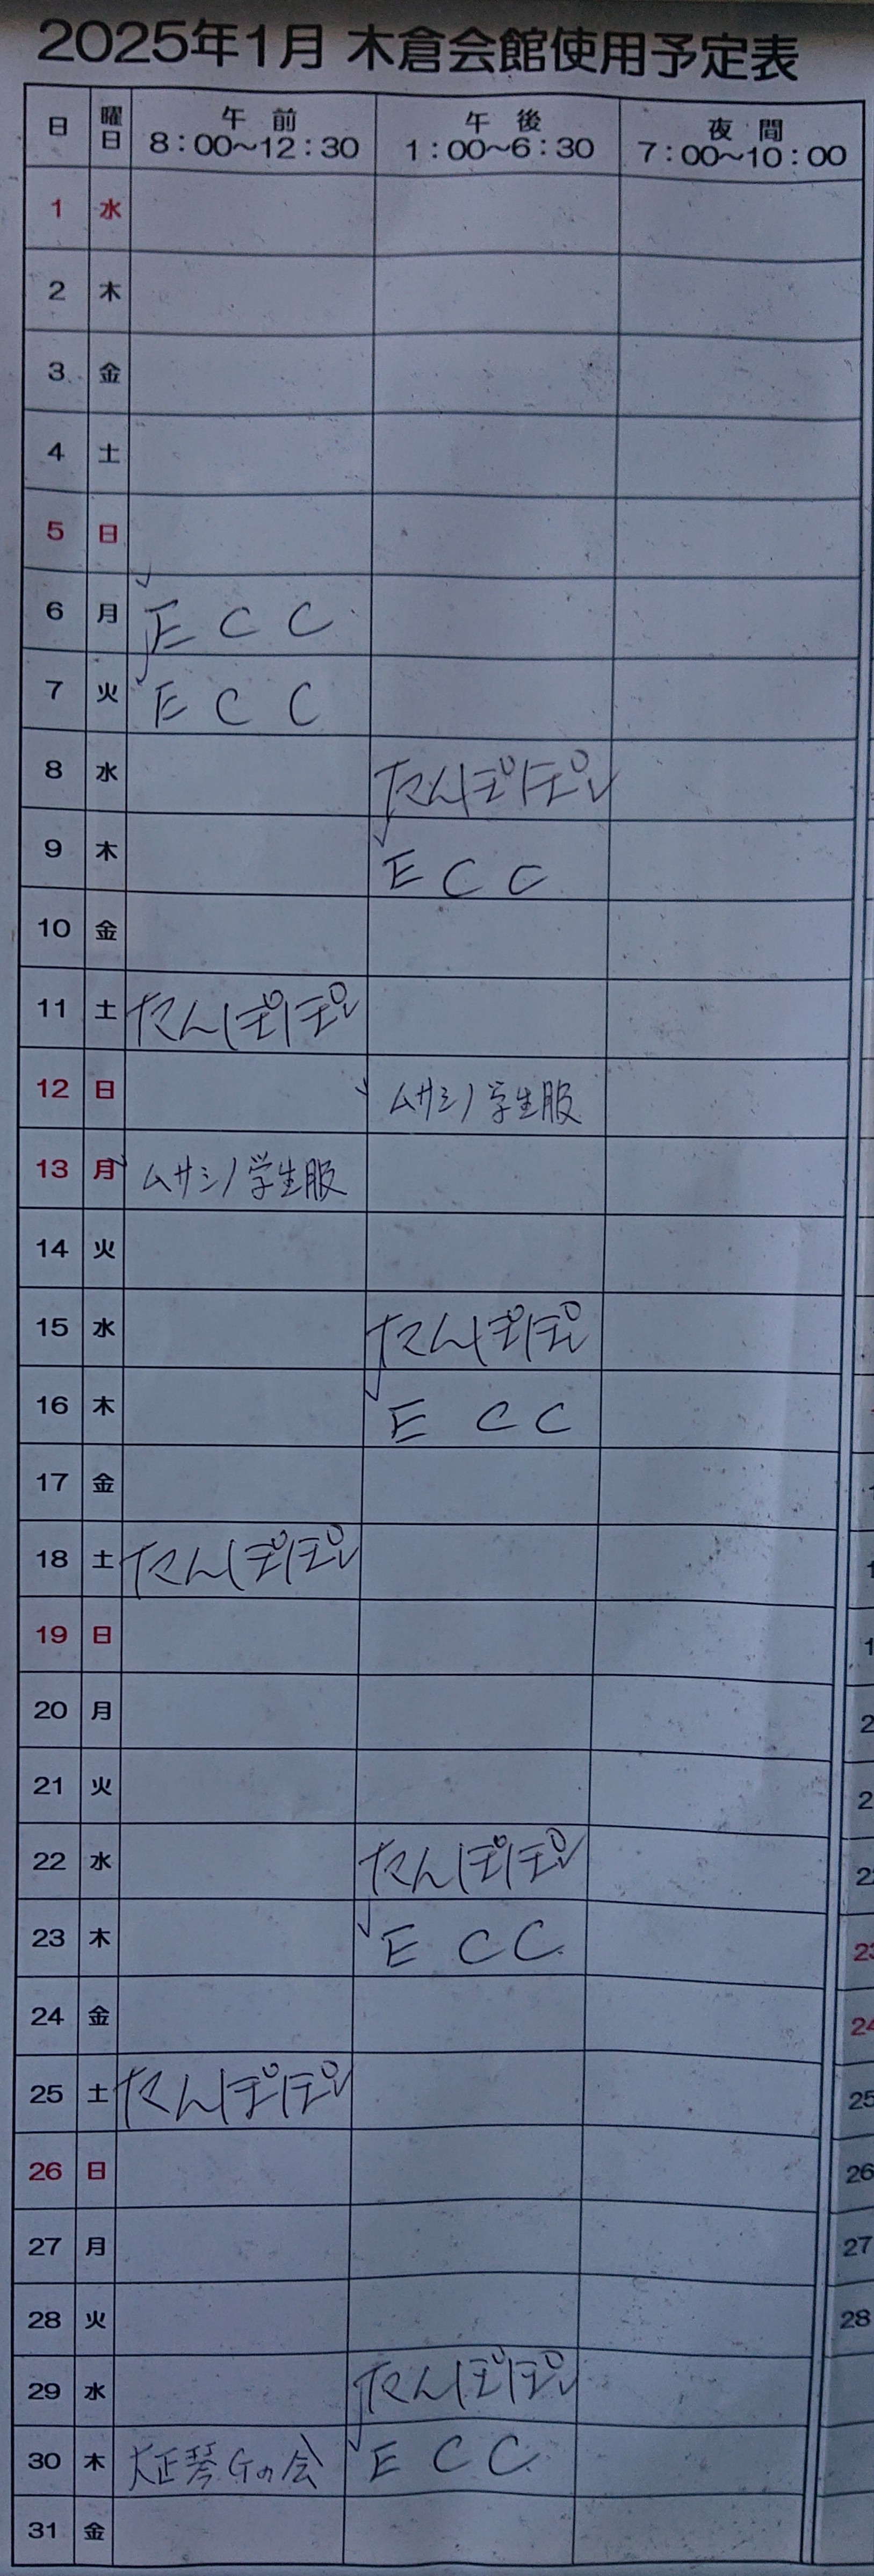 2025年1月 木倉会館使用予定表
日 曜日 午前 8:00～12:30 午後 1:00～6:30 夜間 7:00～10:00
1 水
2 木
3 金
4 土
5 日
6 月 ECC
7 火 ECC
8 水 たんぽぽ
9 木 ECC
10 金
11 土 たんぽぽ
12 日 ムサシノ学生服
13 月 ムサシノ学生服
14 火
15 水 たんぽぽ
16 木 ECC
17 金
18 土 たんぽぽ
19 日
20 月
21 火
22 水 たんぽぽ
23 木 ECC 23
24 金 24
25 土 たんぽぽ 25
26 日 26
27 月 27
28 火 28
29 水 たんぽぽ
30 木 大正琴Gの会 ECC
31 金